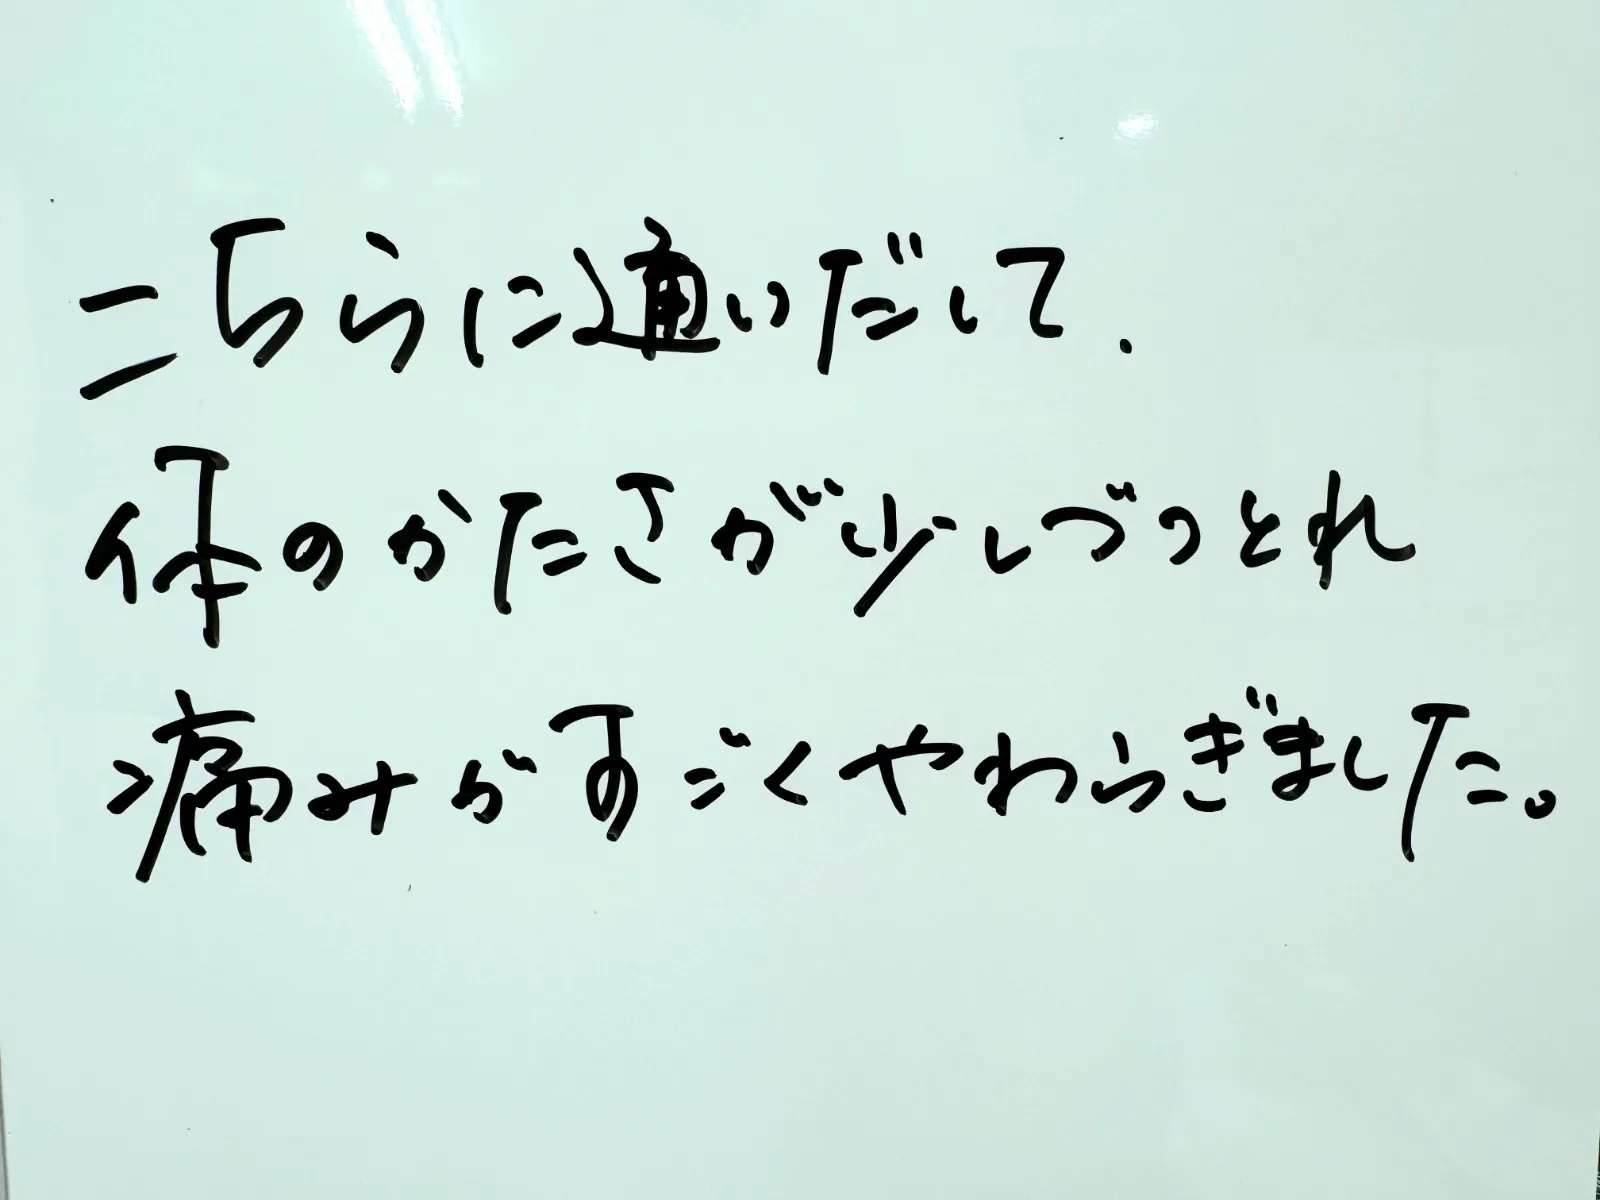 こちらに通いだして.
体のかたさが少しづつとれ
痛みがすごくやわらぎました。